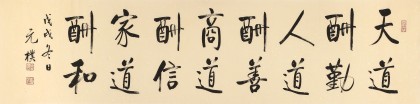 天道
酬勤
人道
酬善
商道
酬信
家道
酬和
戊戌冬日
元朴